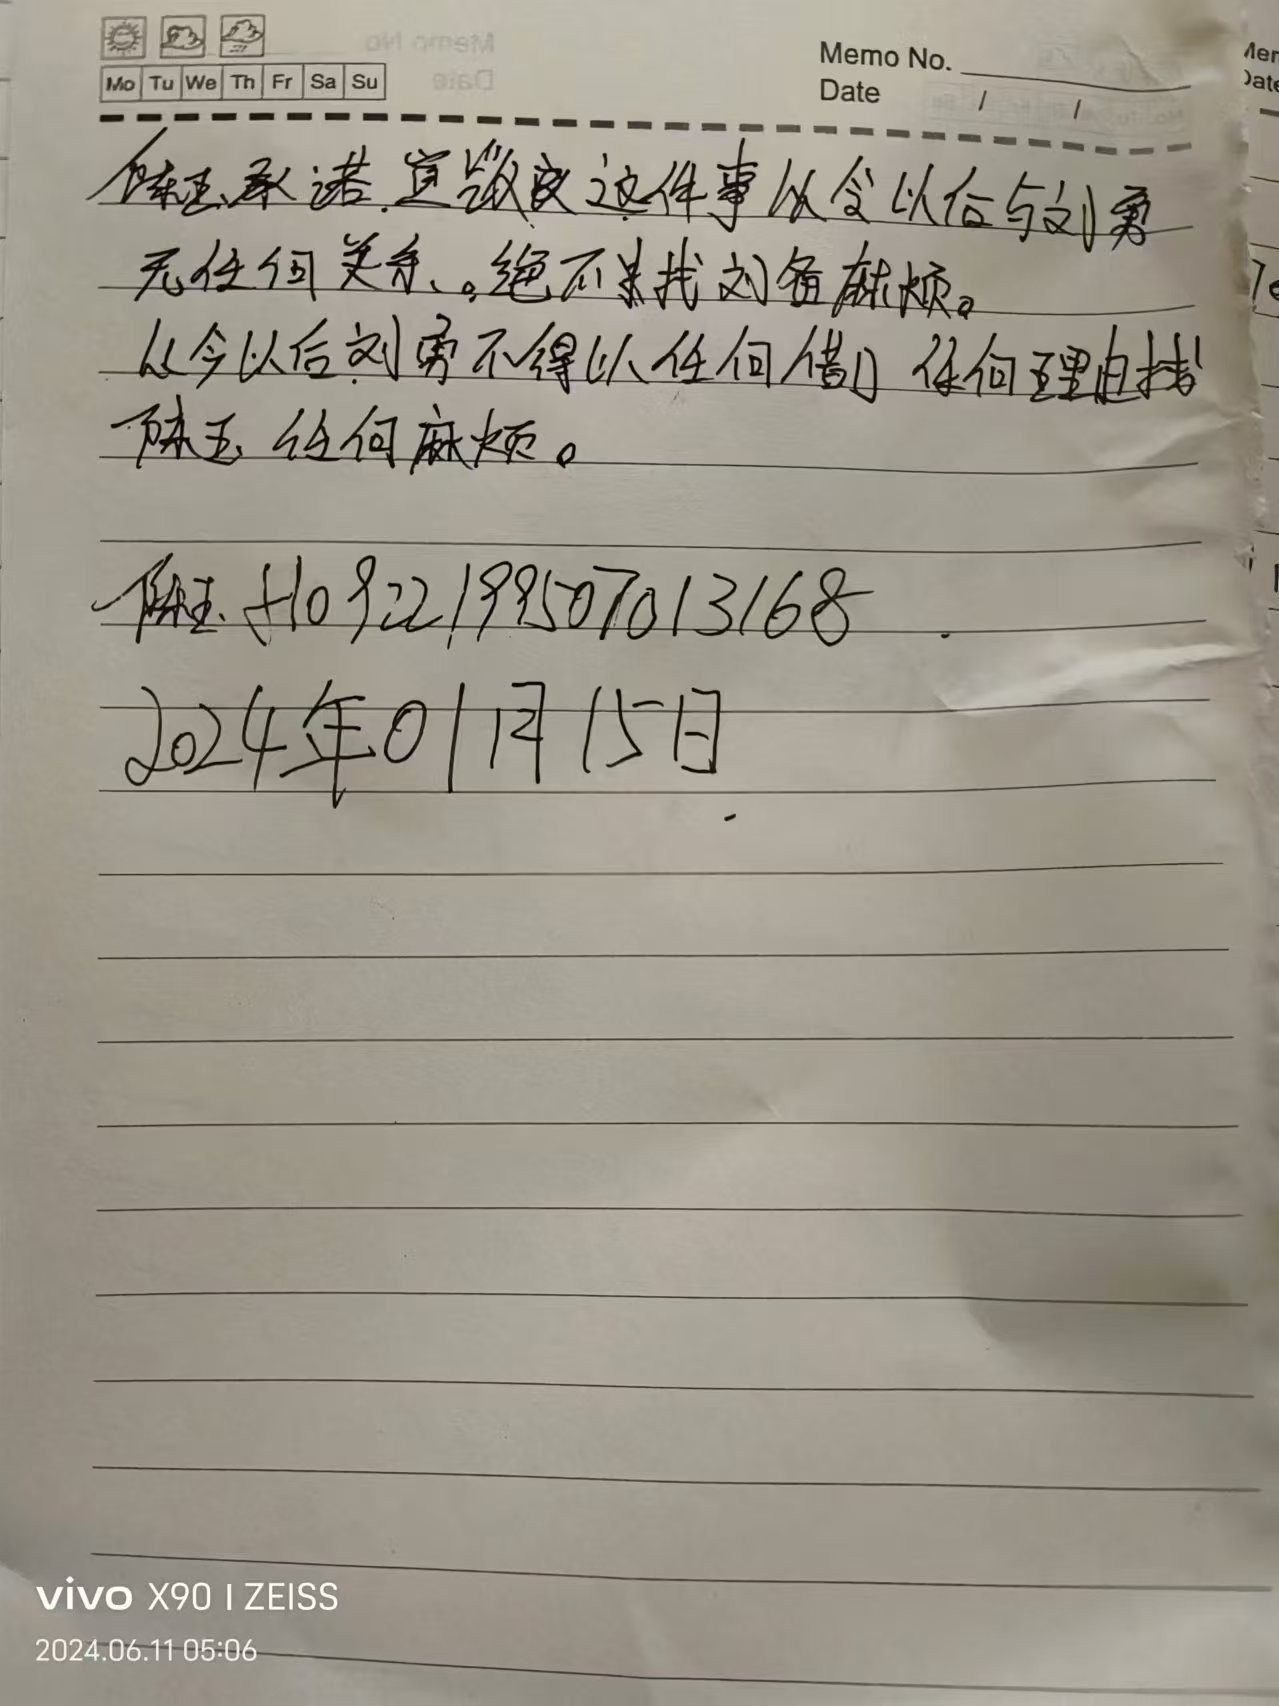 Memo No.
Date / /
Mo Tu We Th Fr Sa Su
陈玉承诺 这件事从今以后与刘勇
无任何关系、。绝不来找刘备麻烦。
从今以后刘勇不得以任何借口 任何理由找
陈玉 任何麻烦。
陈玉
2024年01月15日
vivo X90 | ZEISS
2024.06.11 05:06